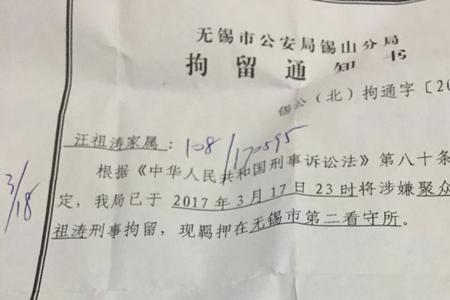 无锡市公安局锡山分局
拘留通知书
锡公（北）拘通字〔20
汪祖涛家属：108/170595
根据《中华人民共和国刑事诉讼法》第八十条
定，我局已于2017年3月17日23时将涉嫌聚众
祖涛刑事拘留，现羁押在无锡市第二看守所。
3/18